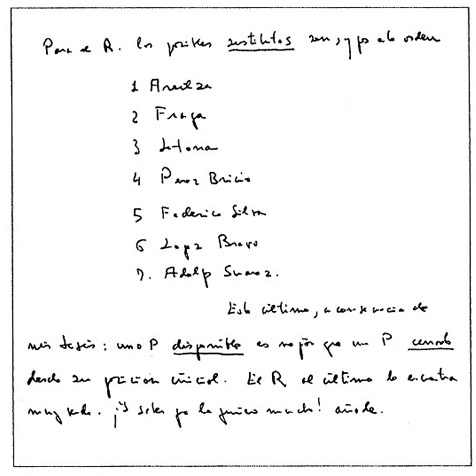 Para el R. los posibles sustitutos son, y por este orden
1 Areilza
2 Fraga
3 Letona
4 Perez Bricio
5 Federico Silva
6 Lopez Bravo
7. Adolfo Suarez.
Este último, a consecuencia de
mis tesis: un P disponible es mejor que un P cerrado
desde su posición inicial. El R, al último lo encuentra
muy verde. ¡Y sabes que lo quiero mucho! añade.